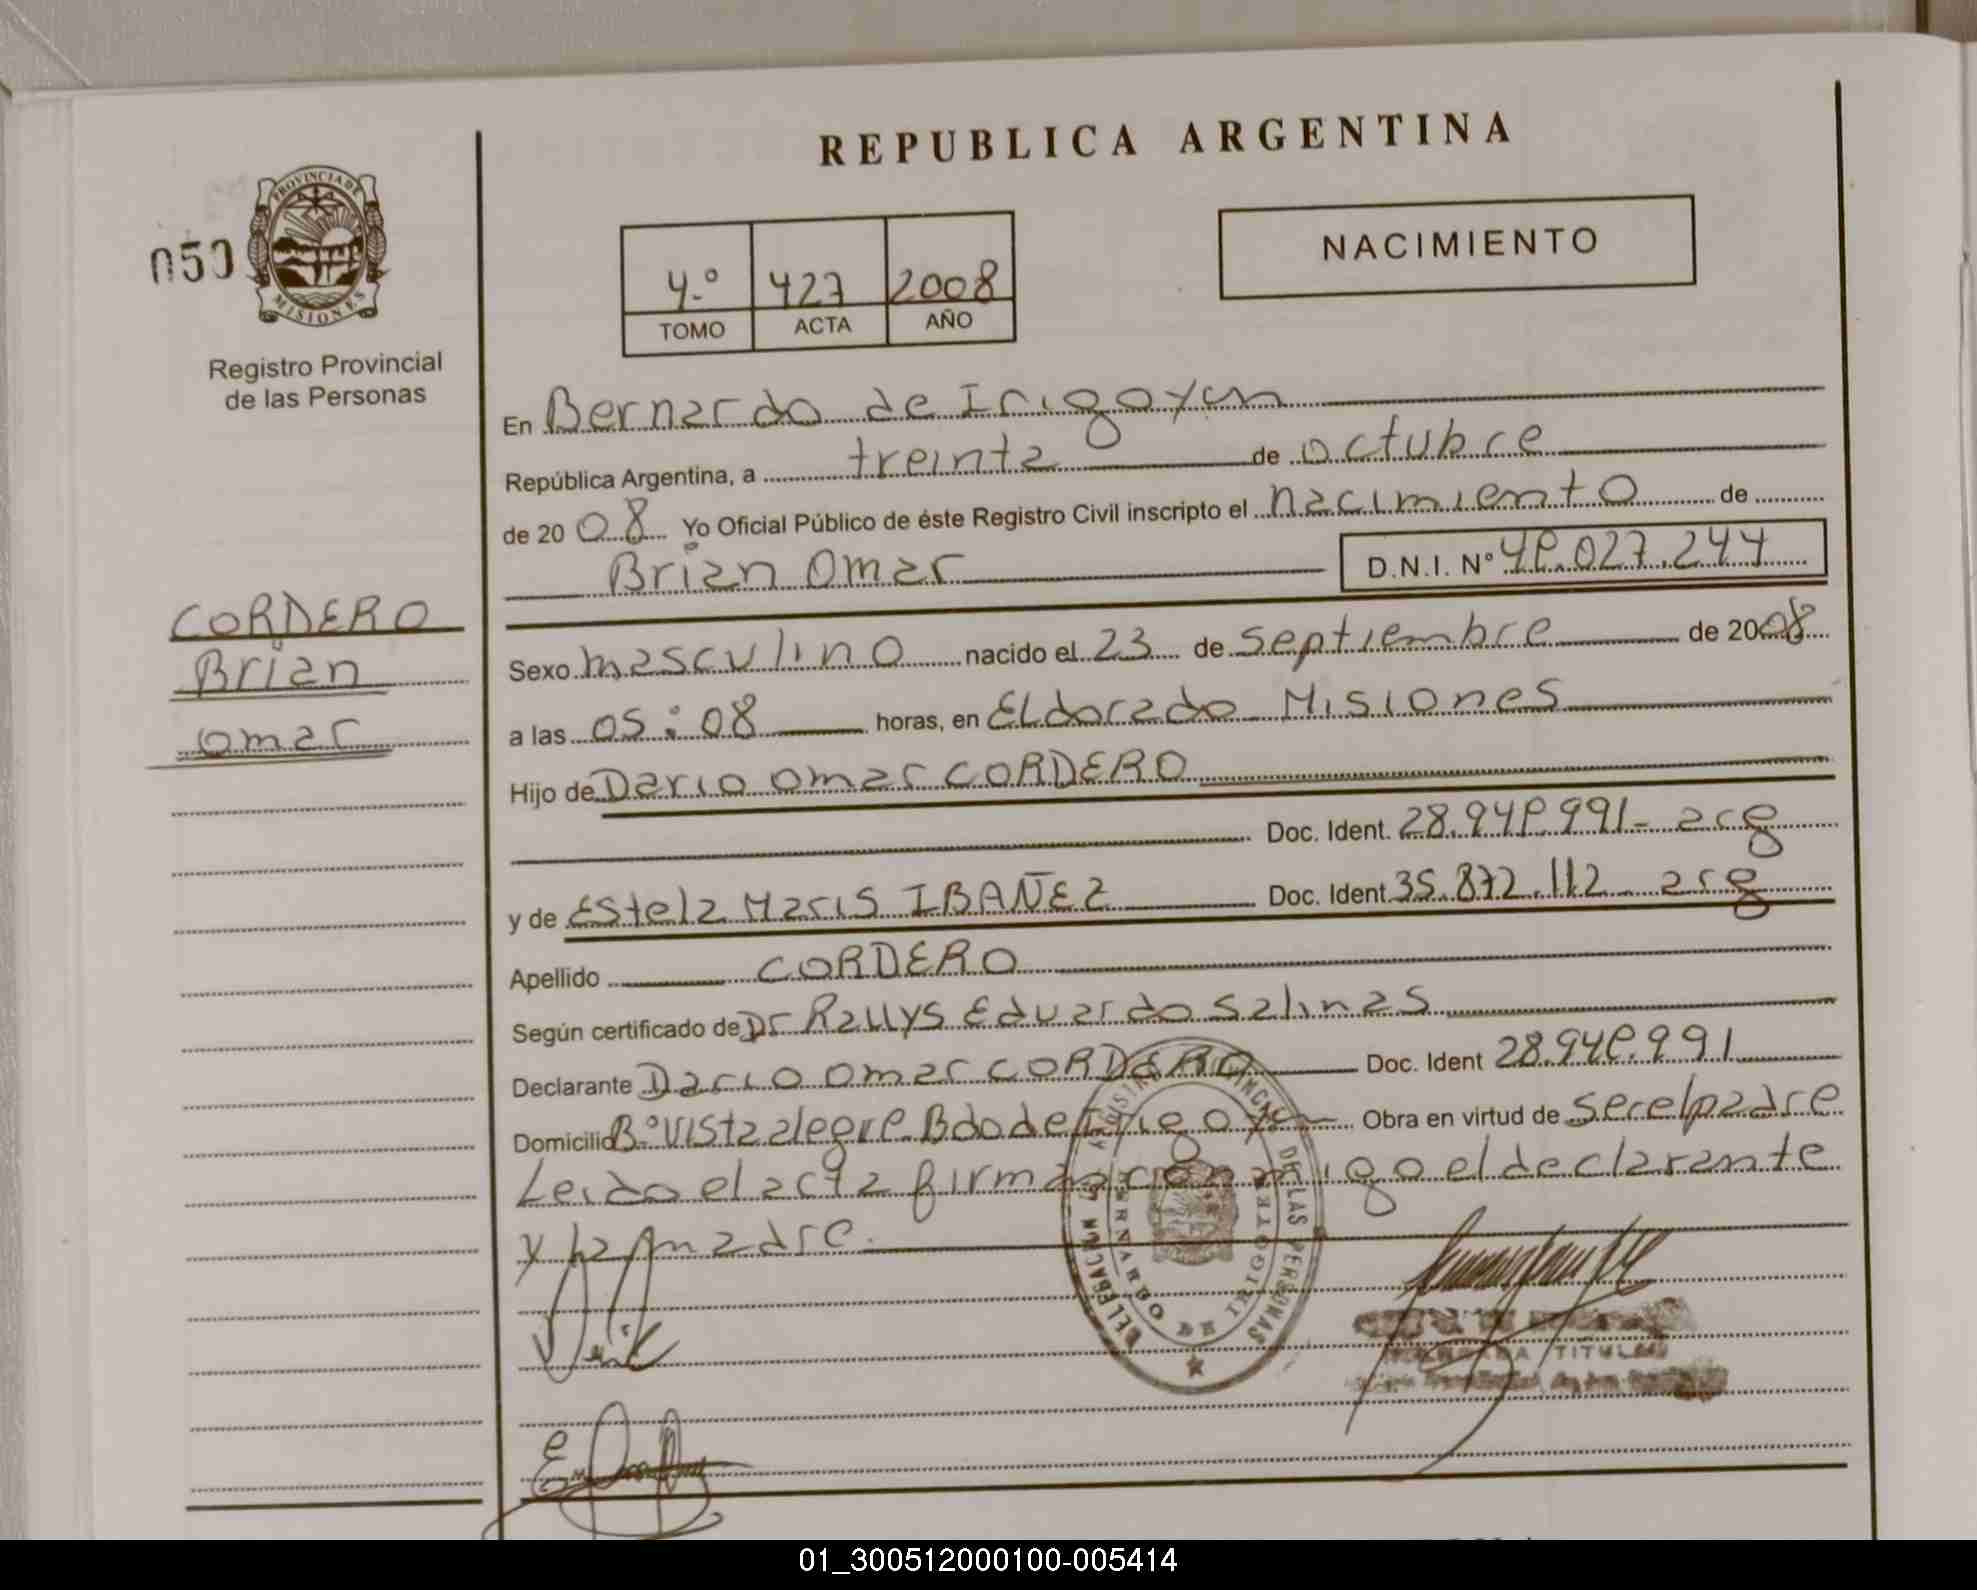 REPUBLICA ARGENTINA
PROVINCIA DE
MISIONES
050
Registro Provincial
de las Personas
4.º 427 2008
TOMO ACTA AÑO
NACIMIENTO
En Bernardo de Irigoyen
República Argentina, a treinta de octubre
de 2008 Yo Oficial Público de éste Registro Civil inscripto el nacimiento de
Brian Omar D.N.I. Nº 49.027.244
CORDERO
Brian
Omar
Sexo masculino nacido el 23 de septiembre de 2008
a las 05:08 horas, en Eldorado Misiones
Hijo de Dario Omar CORDERO
Doc. Ident. 28.949.991- arg
y de Estela Maris IBAÑEZ Doc. Ident. 35.872.112 - arg
Apellido CORDERO
Según certificado de Dr Rallys Eduardo Salinas
Declarante Dario Omar CORDERO Doc. Ident 28.949.991
Domicilio Bº Vista alegre Bdo de Irigoyen Obra en virtud de ser el padre
Leido el acta firman conmigo el declarante
y la madre.
DE LAS PERSONAS
BERNARDO DE IRIGOYEN
TITULAR
01_300512000100-005414